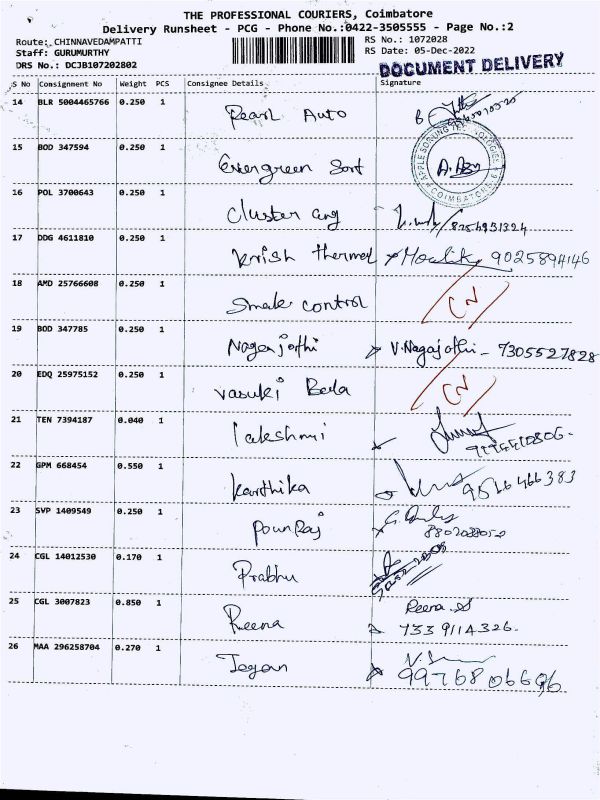 THE PROFESSIONAL COURIERS, Coimbatore
Delivery Runsheet - PCG - Phone No.:0422-3505555 - Page No.:2
Route: CHINNAVEDAMPATTI
Staff: GURUMURTHY
DRS No.: DCJB107202802
RS No.: 1072028
RS Date: 05-Dec-2022
DOCUMENT DELIVERY
S No Consignment No Weight PCS Consignee Details Signature
14 BLR 5004465766 0.250 1 Pearl Auto
15 BOD 347594 0.250 1 Evergreen Sort
APPLE SORTING TECHNOLOGIES COIMBATORE
16 POL 3700643 0.250 1 Cluster eng 8254931324
17 DDG 4611810 0.250 1 Krish thermel 9025894146
18 AMD 25766608 0.250 1 Smak control CN
19 BOD 347785 0.250 1 Nagajothi V.Nagajothi - 7305527828
20 EDQ 25975152 0.250 1 Vasuki CN
21 TEN 7394187 0.040 1 Lakshmi
22 GPM 668454 0.550 1 Karthika 9566466383
23 SVP 1409549 0.250 1 PounRaj
24 CGL 14012530 0.170 1 Prabhu
25 CGL 3007823 0.850 1 Reena Reena 7339114326.
26 MAA 296258704 0.270 1 Jegan